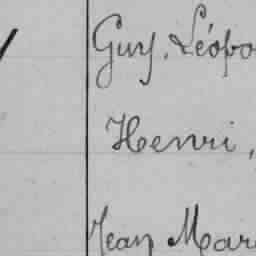 Guy, Léopo
Henri,
Jean Mar